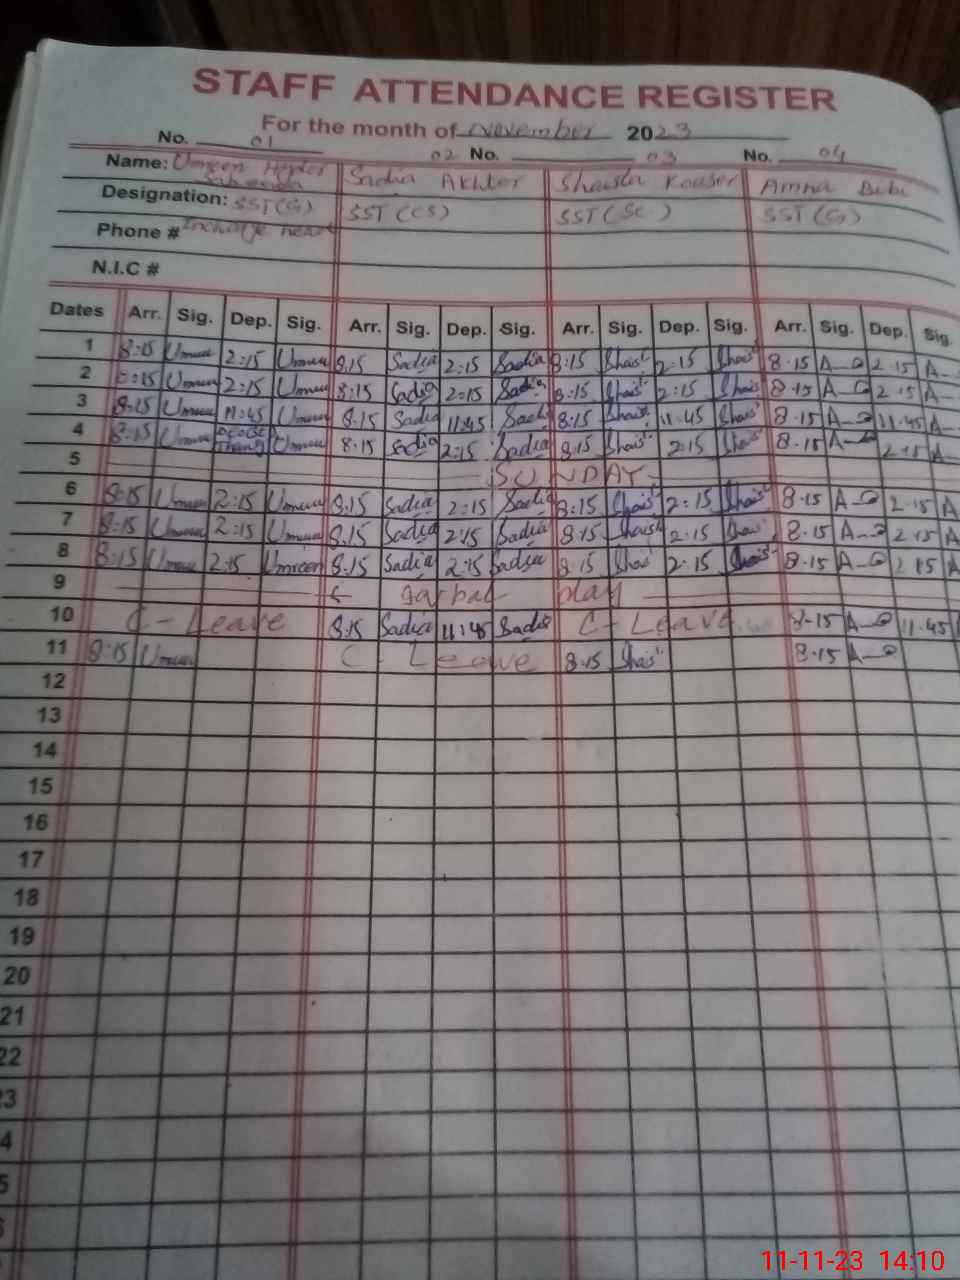 STAFF ATTENDANCE REGISTER
For the month of November 2023
No. 01 02 No. 03 No. 04
Name: Umreen Sadia Akhter Shaista Kouser Amna Bibi
Designation: SST(G) SST(CS) SST(SC) SST(G)
Phone # Incharge
N.I.C #
Dates Arr. Sig. Dep. Sig. Arr. Sig. Dep. Sig. Arr. Sig. Dep. Sig. Arr. Sig. Dep. Sig.
1 8:15 Umreen 2:15 Umreen 8.15 Sadia 2:15 Sadia 8:15 Shais 2.15 Shais 8.15 A 2.15 A
2 8:15 Umreen 2:15 Umreen 8:15 Sadia 2:15 Sadia 8:15 Shais 2:15 Shais 8.15 A 2.15 A
3 8:15 Umreen 11:45 Umreen 8.15 Sadia 11:45 Sadia 8:15 Shais 11.45 Shais 8.15 A 11.45 A
4 8:15 Umreen Umreen 8.15 Sadia 2:15 Sadia 8:15 Shais 2:15 Shais 8.15 A 2.15 A
5 SUNDAY
6 8:15 Umreen 2:15 Umreen 8.15 Sadia 2:15 Sadia 8:15 Shais 2:15 Shais 8.15 A 2.15 A
7 8:15 Umreen 2:15 Umreen 8.15 Sadia 2:15 Sadia 8:15 Shaist 2:15 Shais 8.15 A 2.15 A
8 8:15 Umreen 2:15 Umreen 8.15 Sadia 2:15 Sadia 8:15 Shais 2.15 Shais 8.15 A 2.15 A
9
10 C-Leave 8:15 Sadia 11:45 Sadia C-Leave 8.15 A 11.45
11 8:15 Umreen C-Leave 8.15 Shais 8.15 A
12
13
14
15
16
17
18
19
20
21
22
11-11-23 14:10